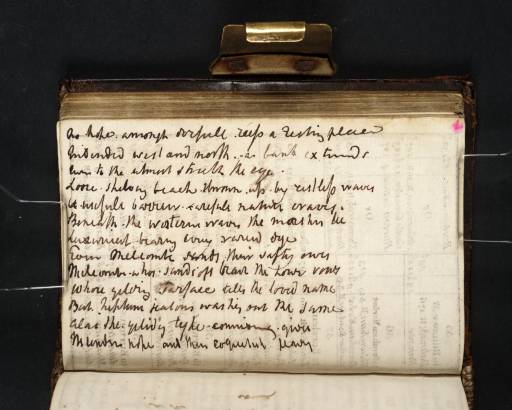 no hope amongst the restless a resting place
Indented west and north a bank extends
Even to the utmost stretch the eye
Loose shelving beach thrown up by restless waves
a useful barrier careful nature craves
Beneath the western waves the marshes lie
Luxuriant bearing every varied dye
Even Melcombe sands their safty owes
Melcombe whose sands oft bear the lover vows
Whose yielding surface tells the loved name
But Neptune jealous washes out the same
Alas the yielding type commonly gives
The lover hope and then coquetish